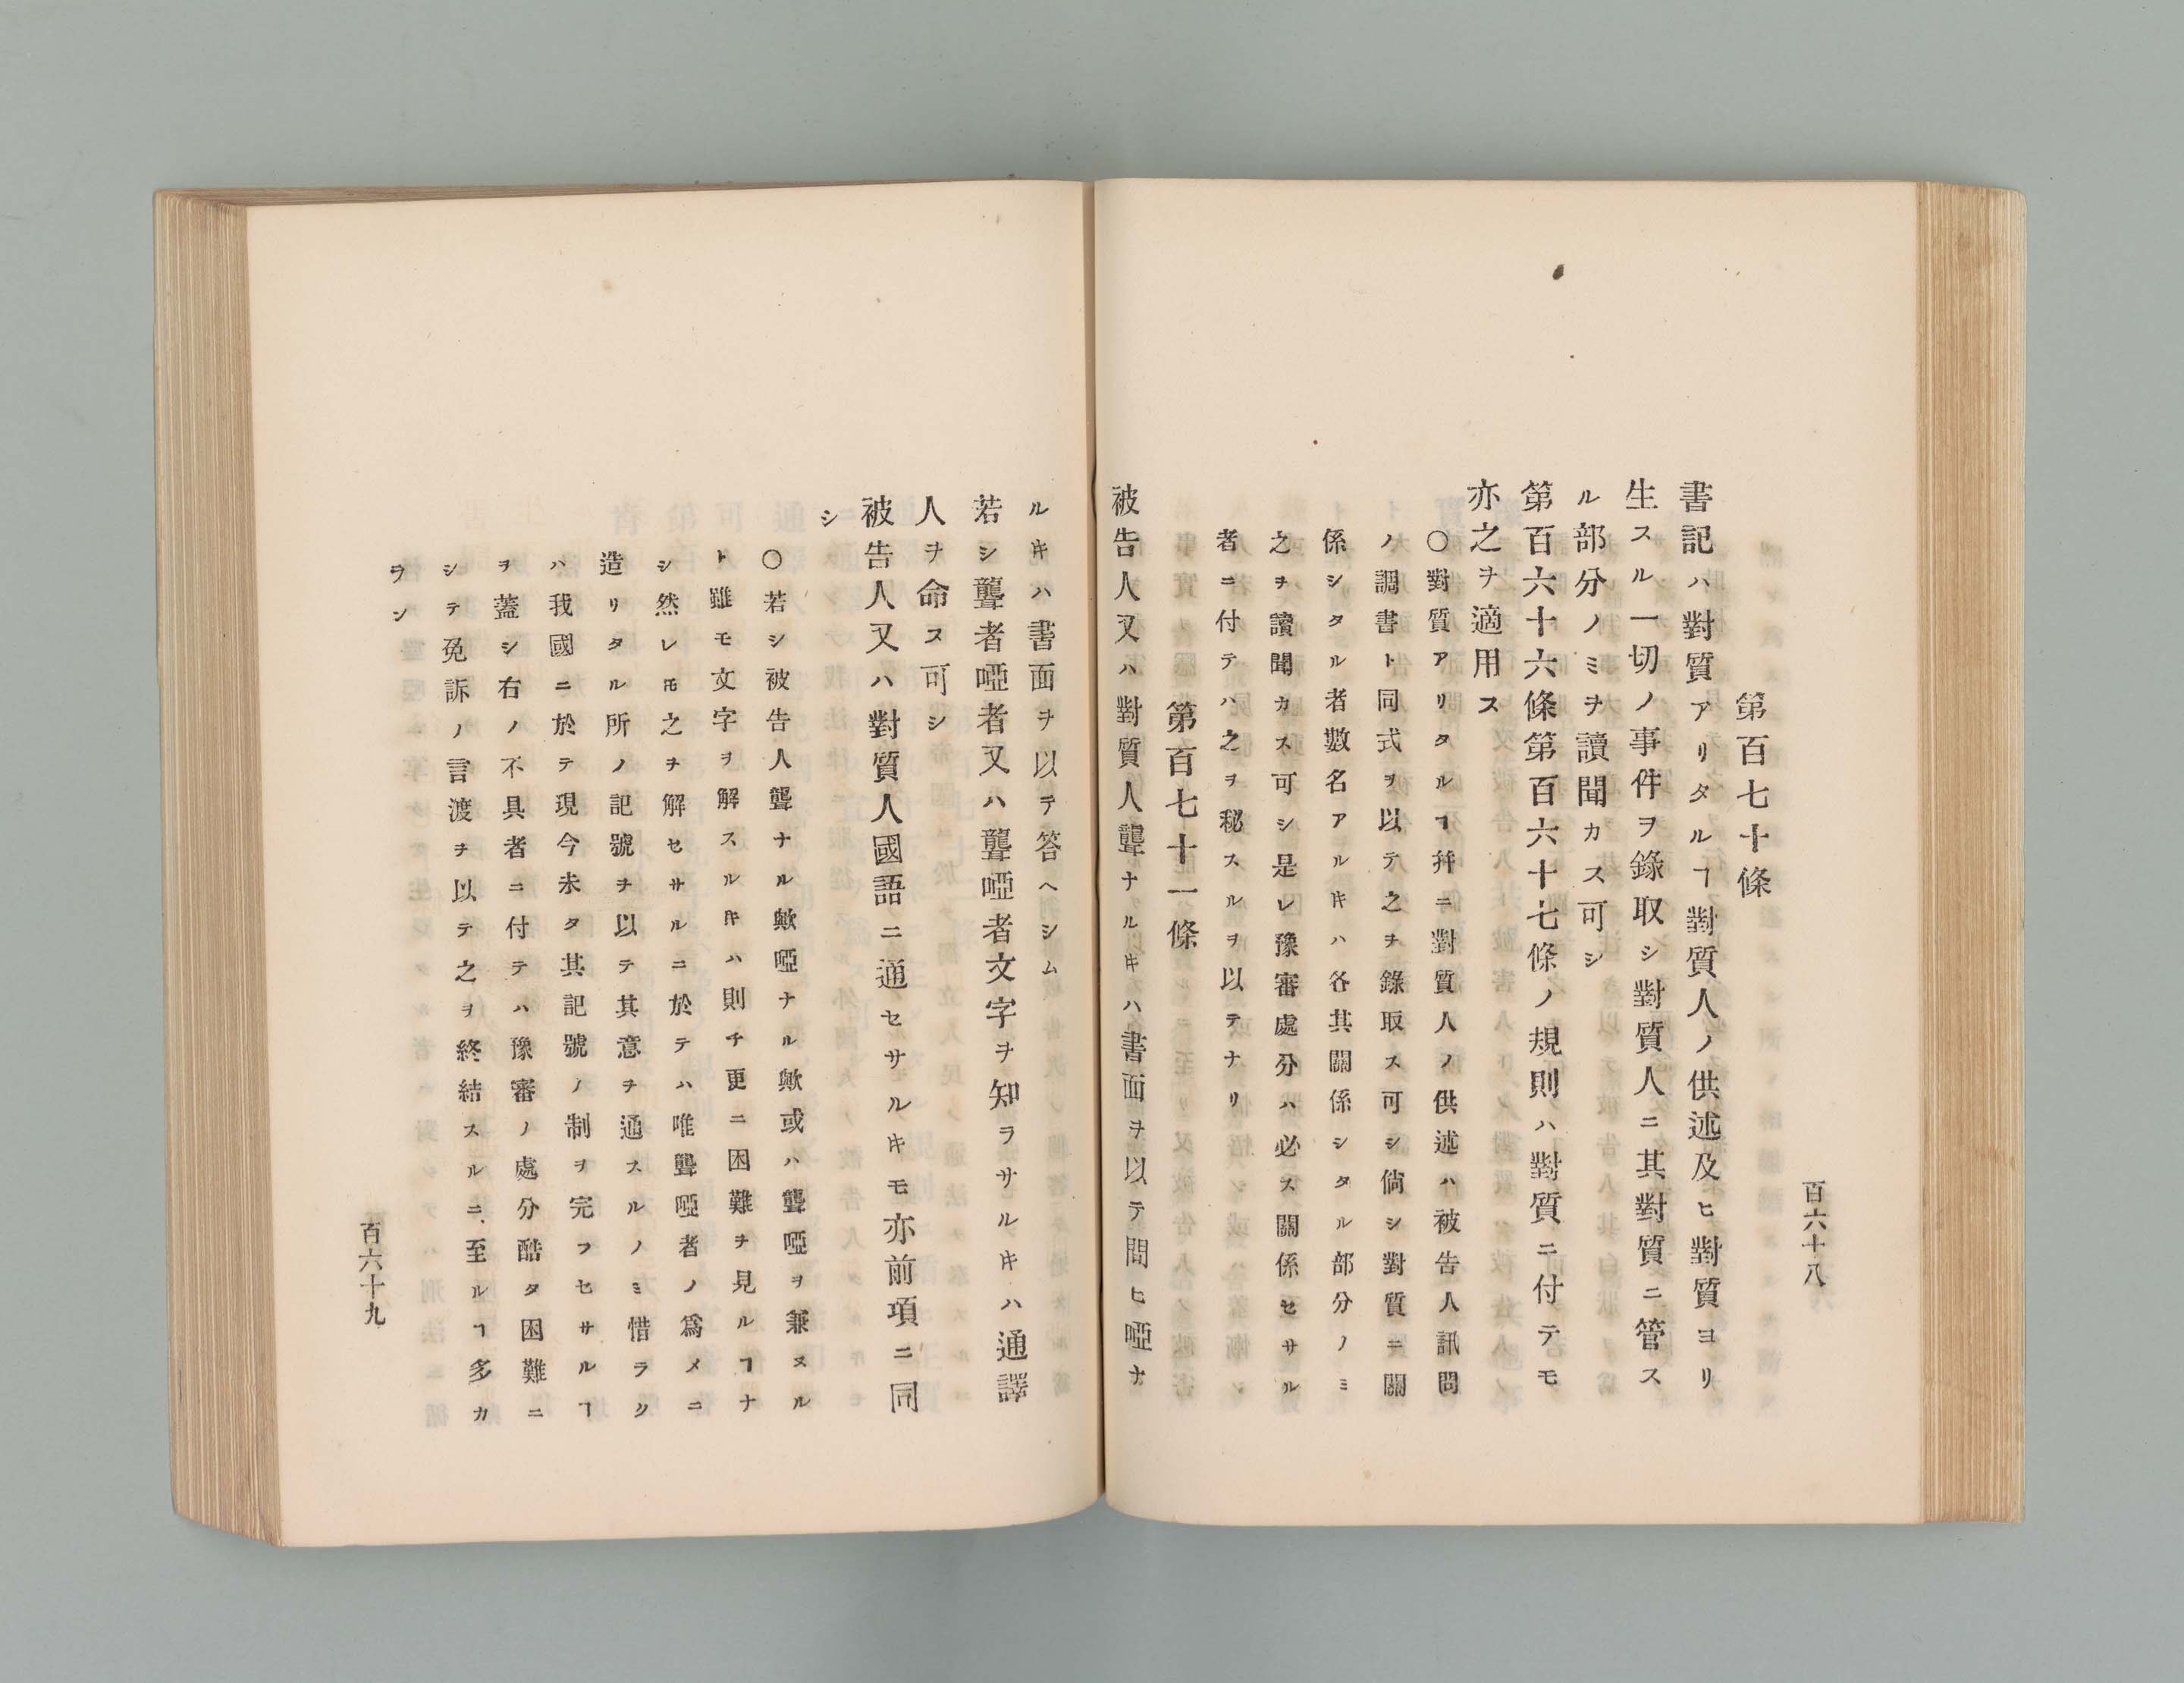 百六十八
第百七十條
書記ハ對質アリタルヿ對質人ノ供述及ヒ對質ヨリ
生スル一切ノ事件ヲ錄取シ對質人ニ其對質ニ管ス
ル部分ノミヲ讀聞カス可シ
第百六十六條第百六十七條ノ規則ハ對質ニ付テモ
亦之ヲ適用ス
〇對質アリタルヿ幷ニ對質人ノ供述ハ被告人訊問
ノ調書ト同式ヲ以テ之ヲ錄取ス可シ倘シ對質ニ關
係シタル者數名アルキハ各其關係シタル部分ノミ
之ヲ讀聞カス可シ是レ豫審處分ハ必ス關係セサル
者ニ付テハ之ヲ秘スルヲ以テナリ
第百七十一條
被告人又ハ對質人聾ナルキハ書面ヲ以テ問ヒ啞ナ
ルキハ書面ヲ以テ答ヘシム
若シ聾者啞者又ハ聾啞者文字ヲ知ラサルキハ通譯
人ヲ命ス可シ
被告人又ハ對質人國語ニ通セサルキモ亦前項ニ同
シ
〇若シ被告人聾ナル歟啞ナル歟或ハ聾啞ヲ兼ヌル
ト雖モ文字ヲ解スルキハ則チ更ニ困難ヲ見ルヿナ
シ然レ𪜈之ヲ解セサルニ於テハ唯聾啞者ノ爲メニ
造リタル所ノ記號ヲ以テ其意ヲ通スルノミ惜ラク
ハ我國ニ於テ現今未タ其記號ノ制ヲ完フセサルヿ
ヲ蓋シ右ノ不具者ニ付テハ豫審ノ處分酷タ困難ニ
シテ免訴ノ言渡ヲ以テ之ヲ終結スルニ至ルヿ多カ
ラン
百六十九